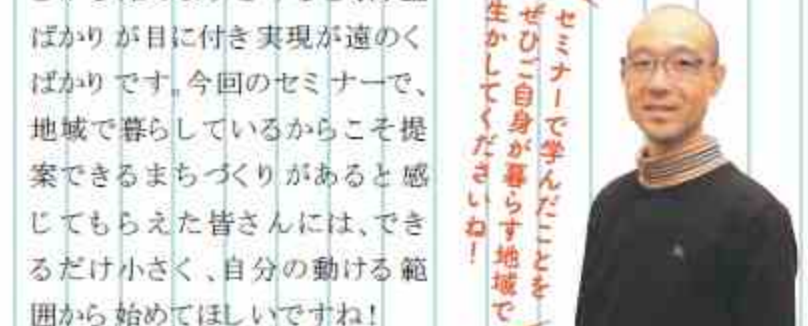 ばかりが目に付き実現が遠のく
ばかりです。今回のセミナーで、
地域で暮らしているからこそ提
案できるまちづくりがあると感
じてもらえた皆さんには、でき
るだけ小さく、自分の動ける範
囲から始めてほしいですね！
セミナーで学んだことを
ぜひご自身が暮らす地域で
生かしてくださいね！